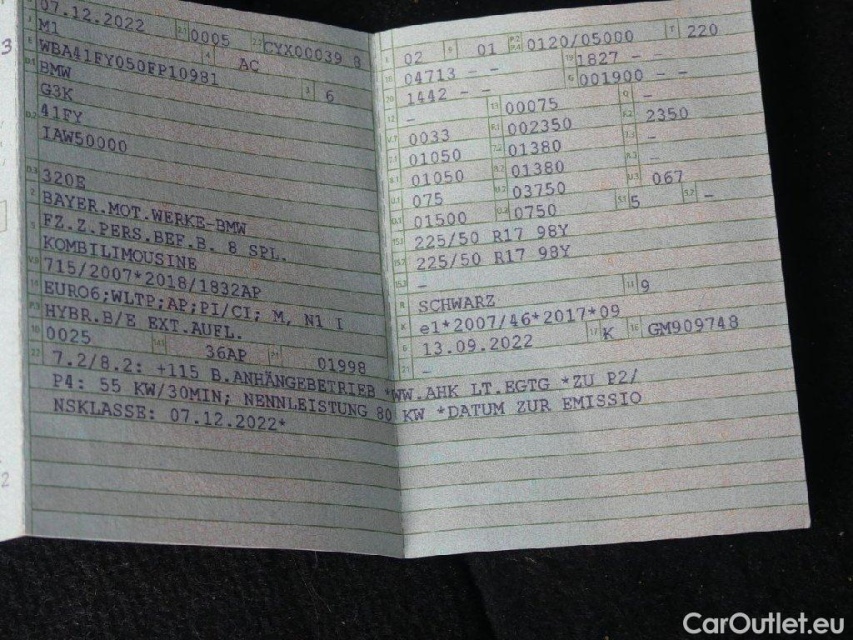 07.12.2022 0005 CYX00039 8
M1 AC
WBA41FY050FP10981
BMW 6
G3K
41FY
IAW50000
320E
BAYER.MOT.WERKE-BMW
FZ.Z.PERS.BEF.B. 8 SPL.
KOMBILIMOUSINE
715/2007*2018/1832AP
EURO6;WLTP;AP;PI/CI; M, N1 I
HYBR.B/E EXT.AUFL.
0025 36AP 01998
7.2/8.2: +115 B.ANHÄNGEBETRIEB *WW.AHK LT.EGTG *ZU P2/
P4: 55 KW/30MIN; NENNLEISTUNG 80 KW *DATUM ZUR EMISSIO
NSKLASSE: 07.12.2022*
02 01 0120/05000 220
04713 - - 1827 - -
1442 - - 001900 - -
- 00075 -
0033 002350 2350
01050 01380 -
01050 01380 -
075 03750 067
01500 0750 5 -
225/50 R17 98Y
225/50 R17 98Y
-
SCHWARZ 9
e1*2007/46*2017*09
13.09.2022 K GM909748
-
CarOutlet.eu